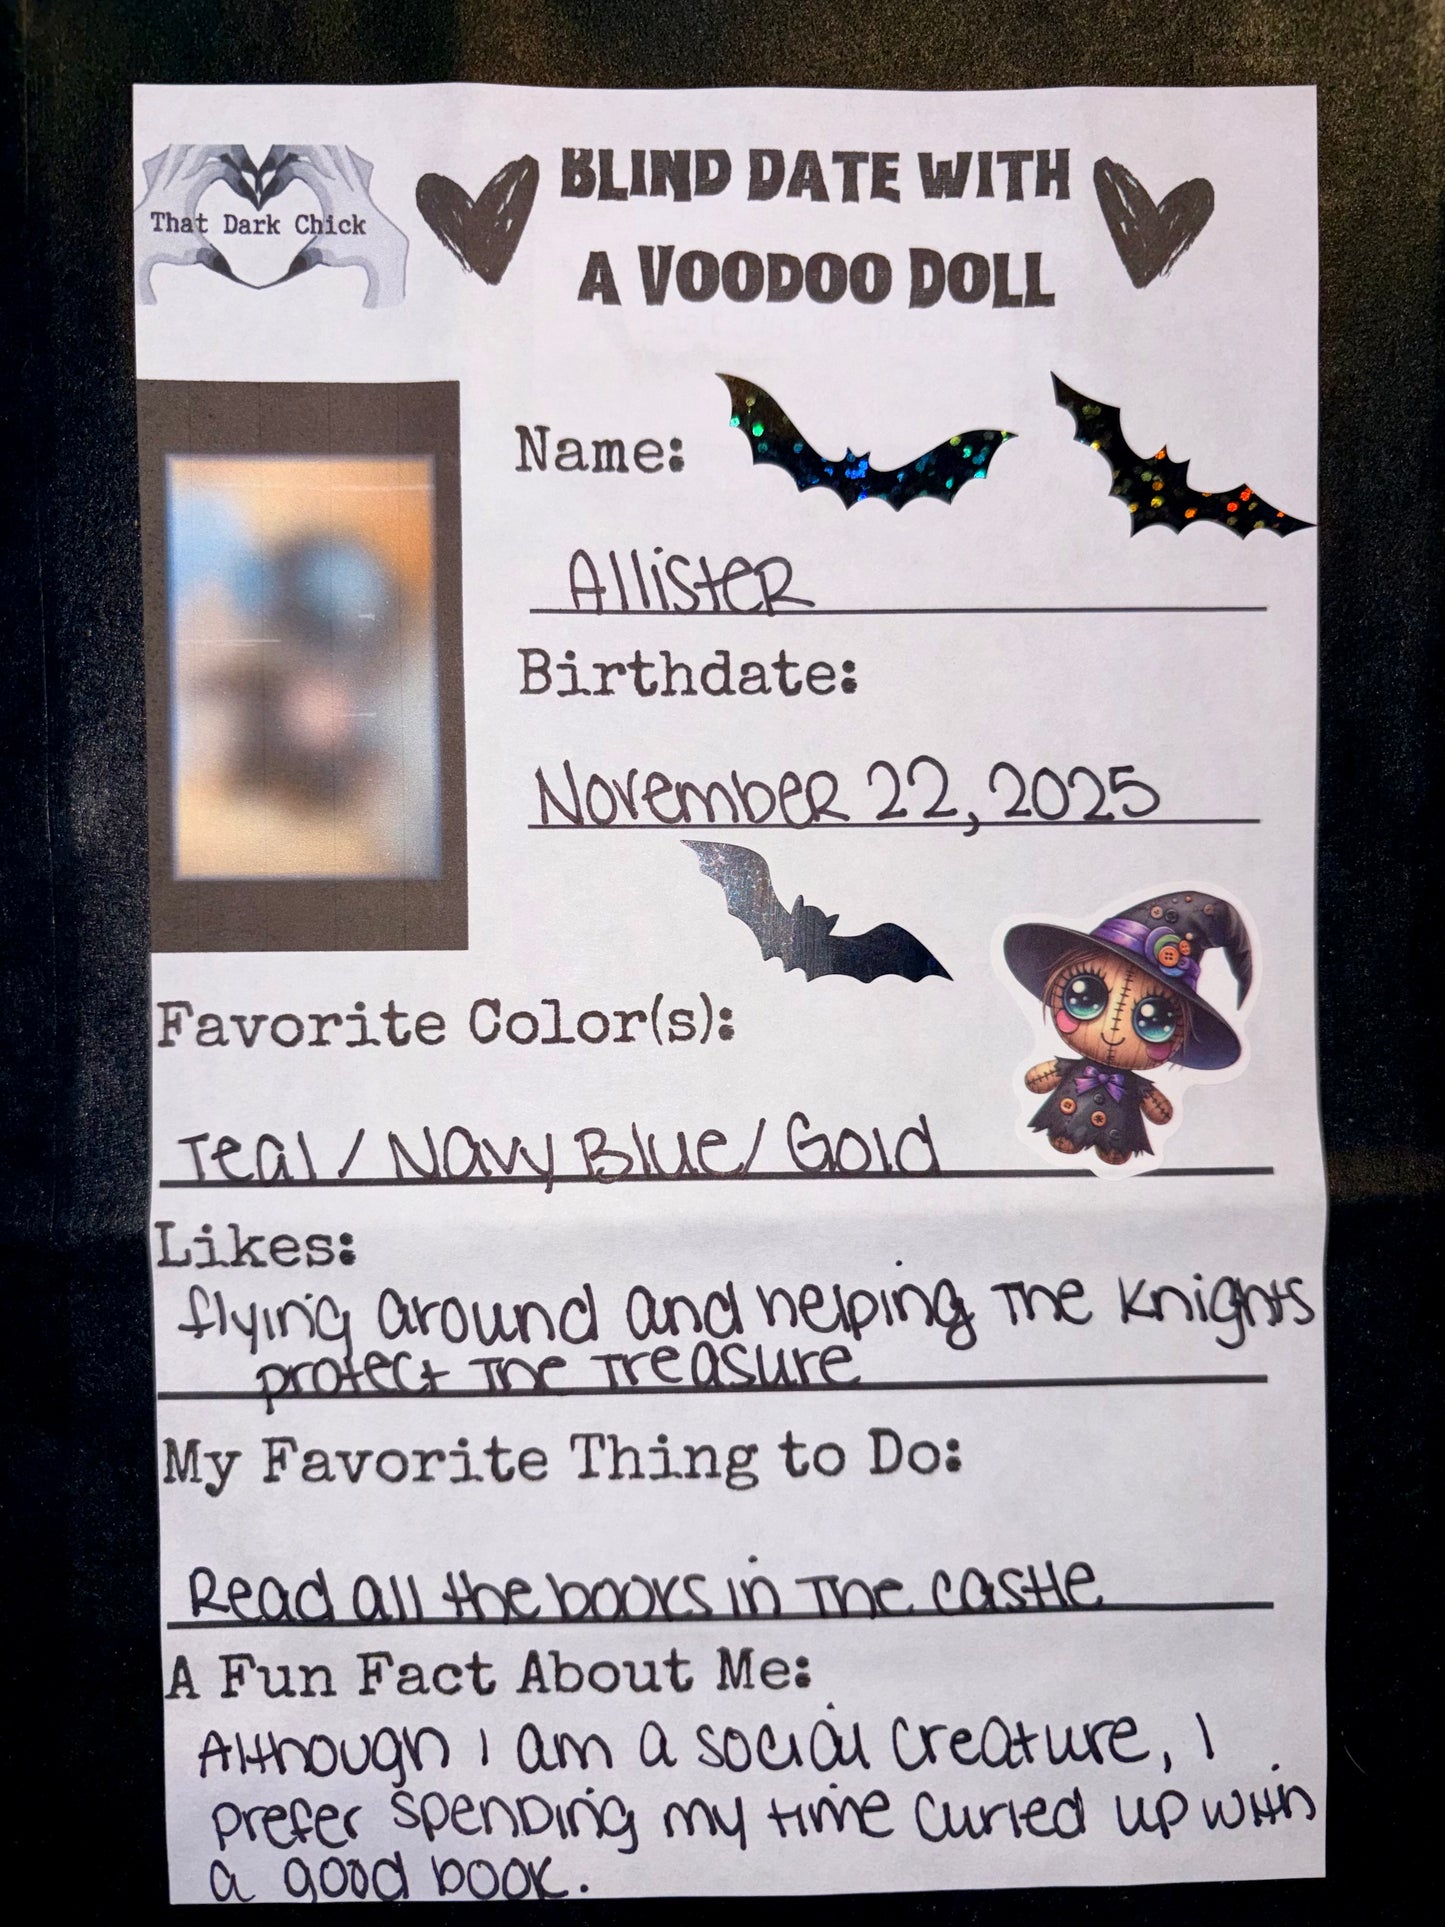 That Dark Chick
BLIND DATE WITH
A VOODOO DOLL
Name:
Allister
Birthdate:
November 22, 2025
Favorite Color(s):
Teal / Navy Blue / Gold
Likes:
flying around and helping the knights
protect the treasure
My Favorite Thing to Do:
Read all the books in the castle
A Fun Fact About Me:
Although I am a social creature, I
prefer spending my time curled up with
a good book.